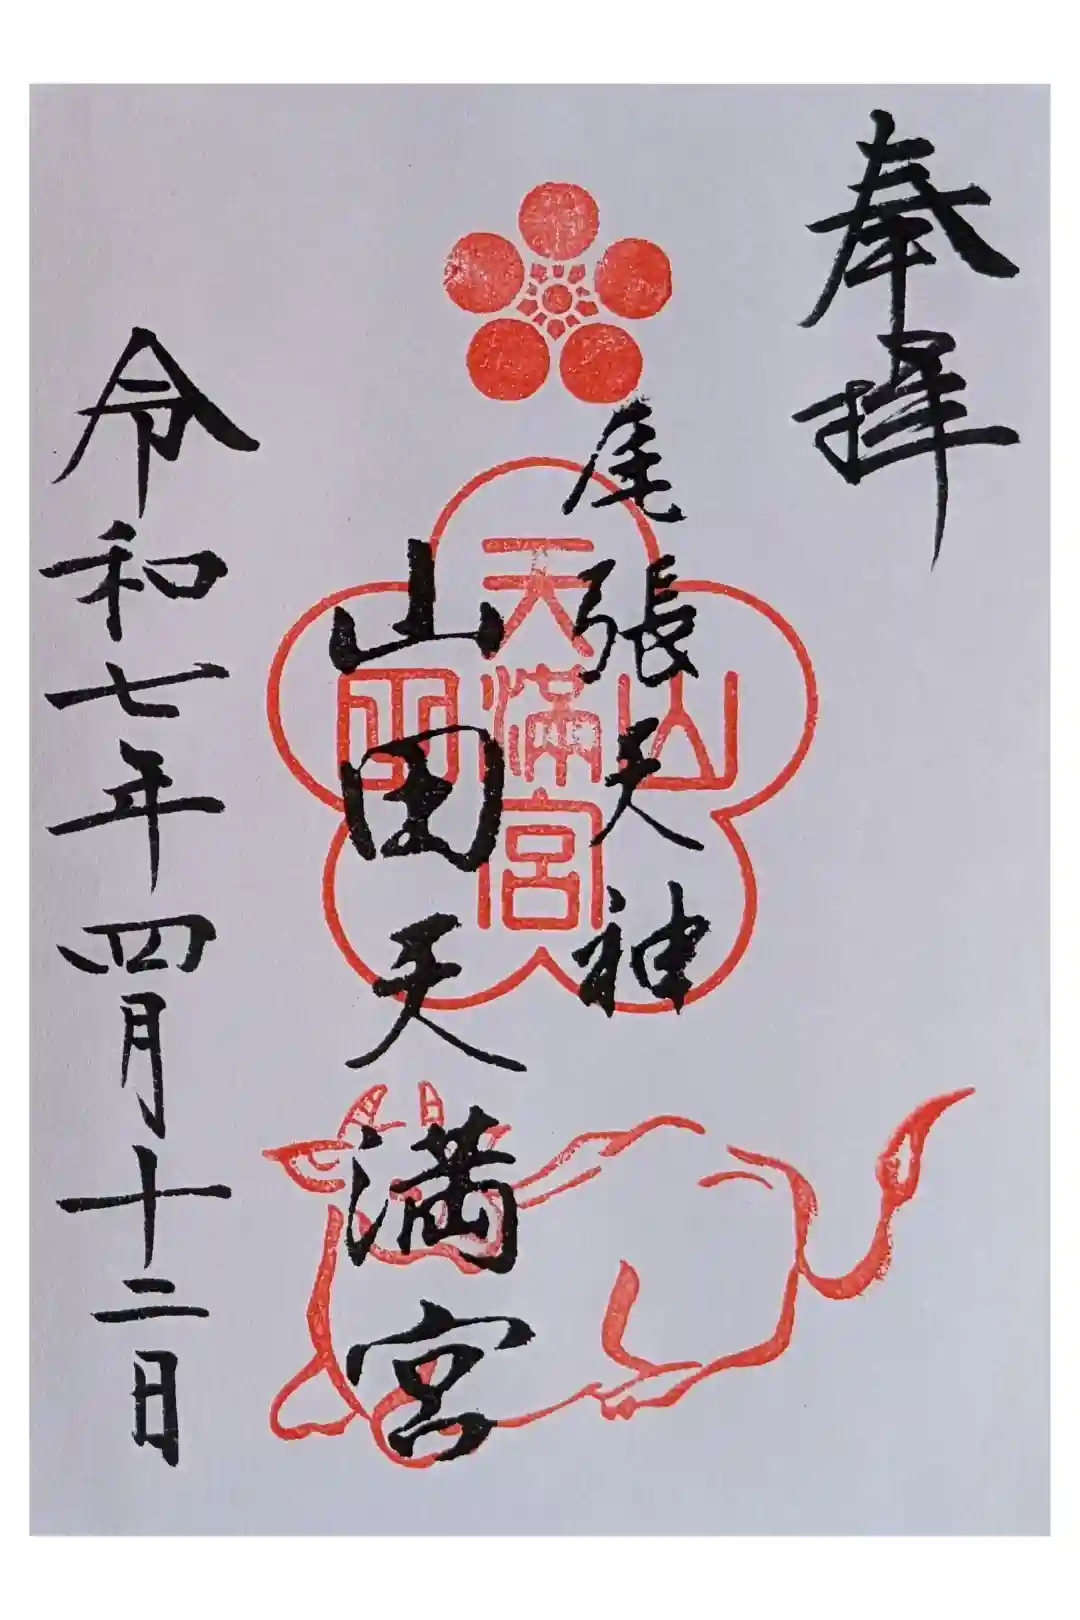 奉拝
尾張天神
山田天満宮
令和七年四月十二日
山
天満宮
田